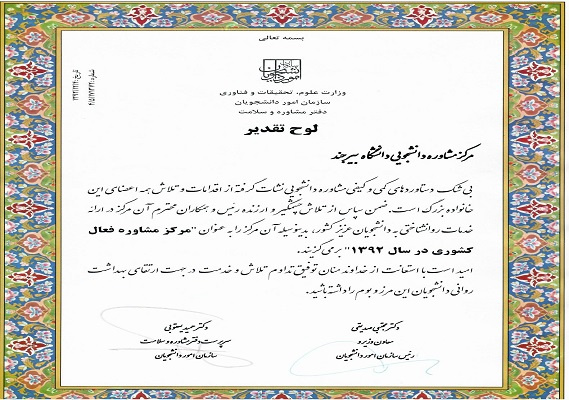 بسمه تعالی
وزارت علوم، تحقیقات و فناوری
سازمان امور دانشجویان
دفتر مشاوره و سلامت
لوح تقدیر
مرکز مشاوره دانشجویی دانشگاه بیرجند
بی شک دستاوردهای کمی و کیفی مشاوره دانشجویی نشات گرفته از اقدامات و تلاش همه اعضای این
خانواده بزرگ است. ضمن سپاس از تلاش چشمگیر و ارزنده رئیس و همکاران محترم آن مرکز در ارائه
خدمات روانشناختی به دانشجویان عزیز کشور، بدینوسیله آن مرکز را به عنوان "مرکز مشاوره فعال
کشوری در سال ۱۳۹۲" برمی گزیند.
امید است با استعانت از خداوند منان توفیق تداوم تلاش و خدمت در جهت ارتقای بهداشت
روانی دانشجویان این مرز و بوم را داشته باشید.
دکتر مجتبی صدیقی
معاون وزیر و
رئیس سازمان امور دانشجویان
دکتر حمید یعقوبی
سرپرست دفتر مشاوره و سلامت
سازمان امور دانشجویان
شماره:
تاریخ: